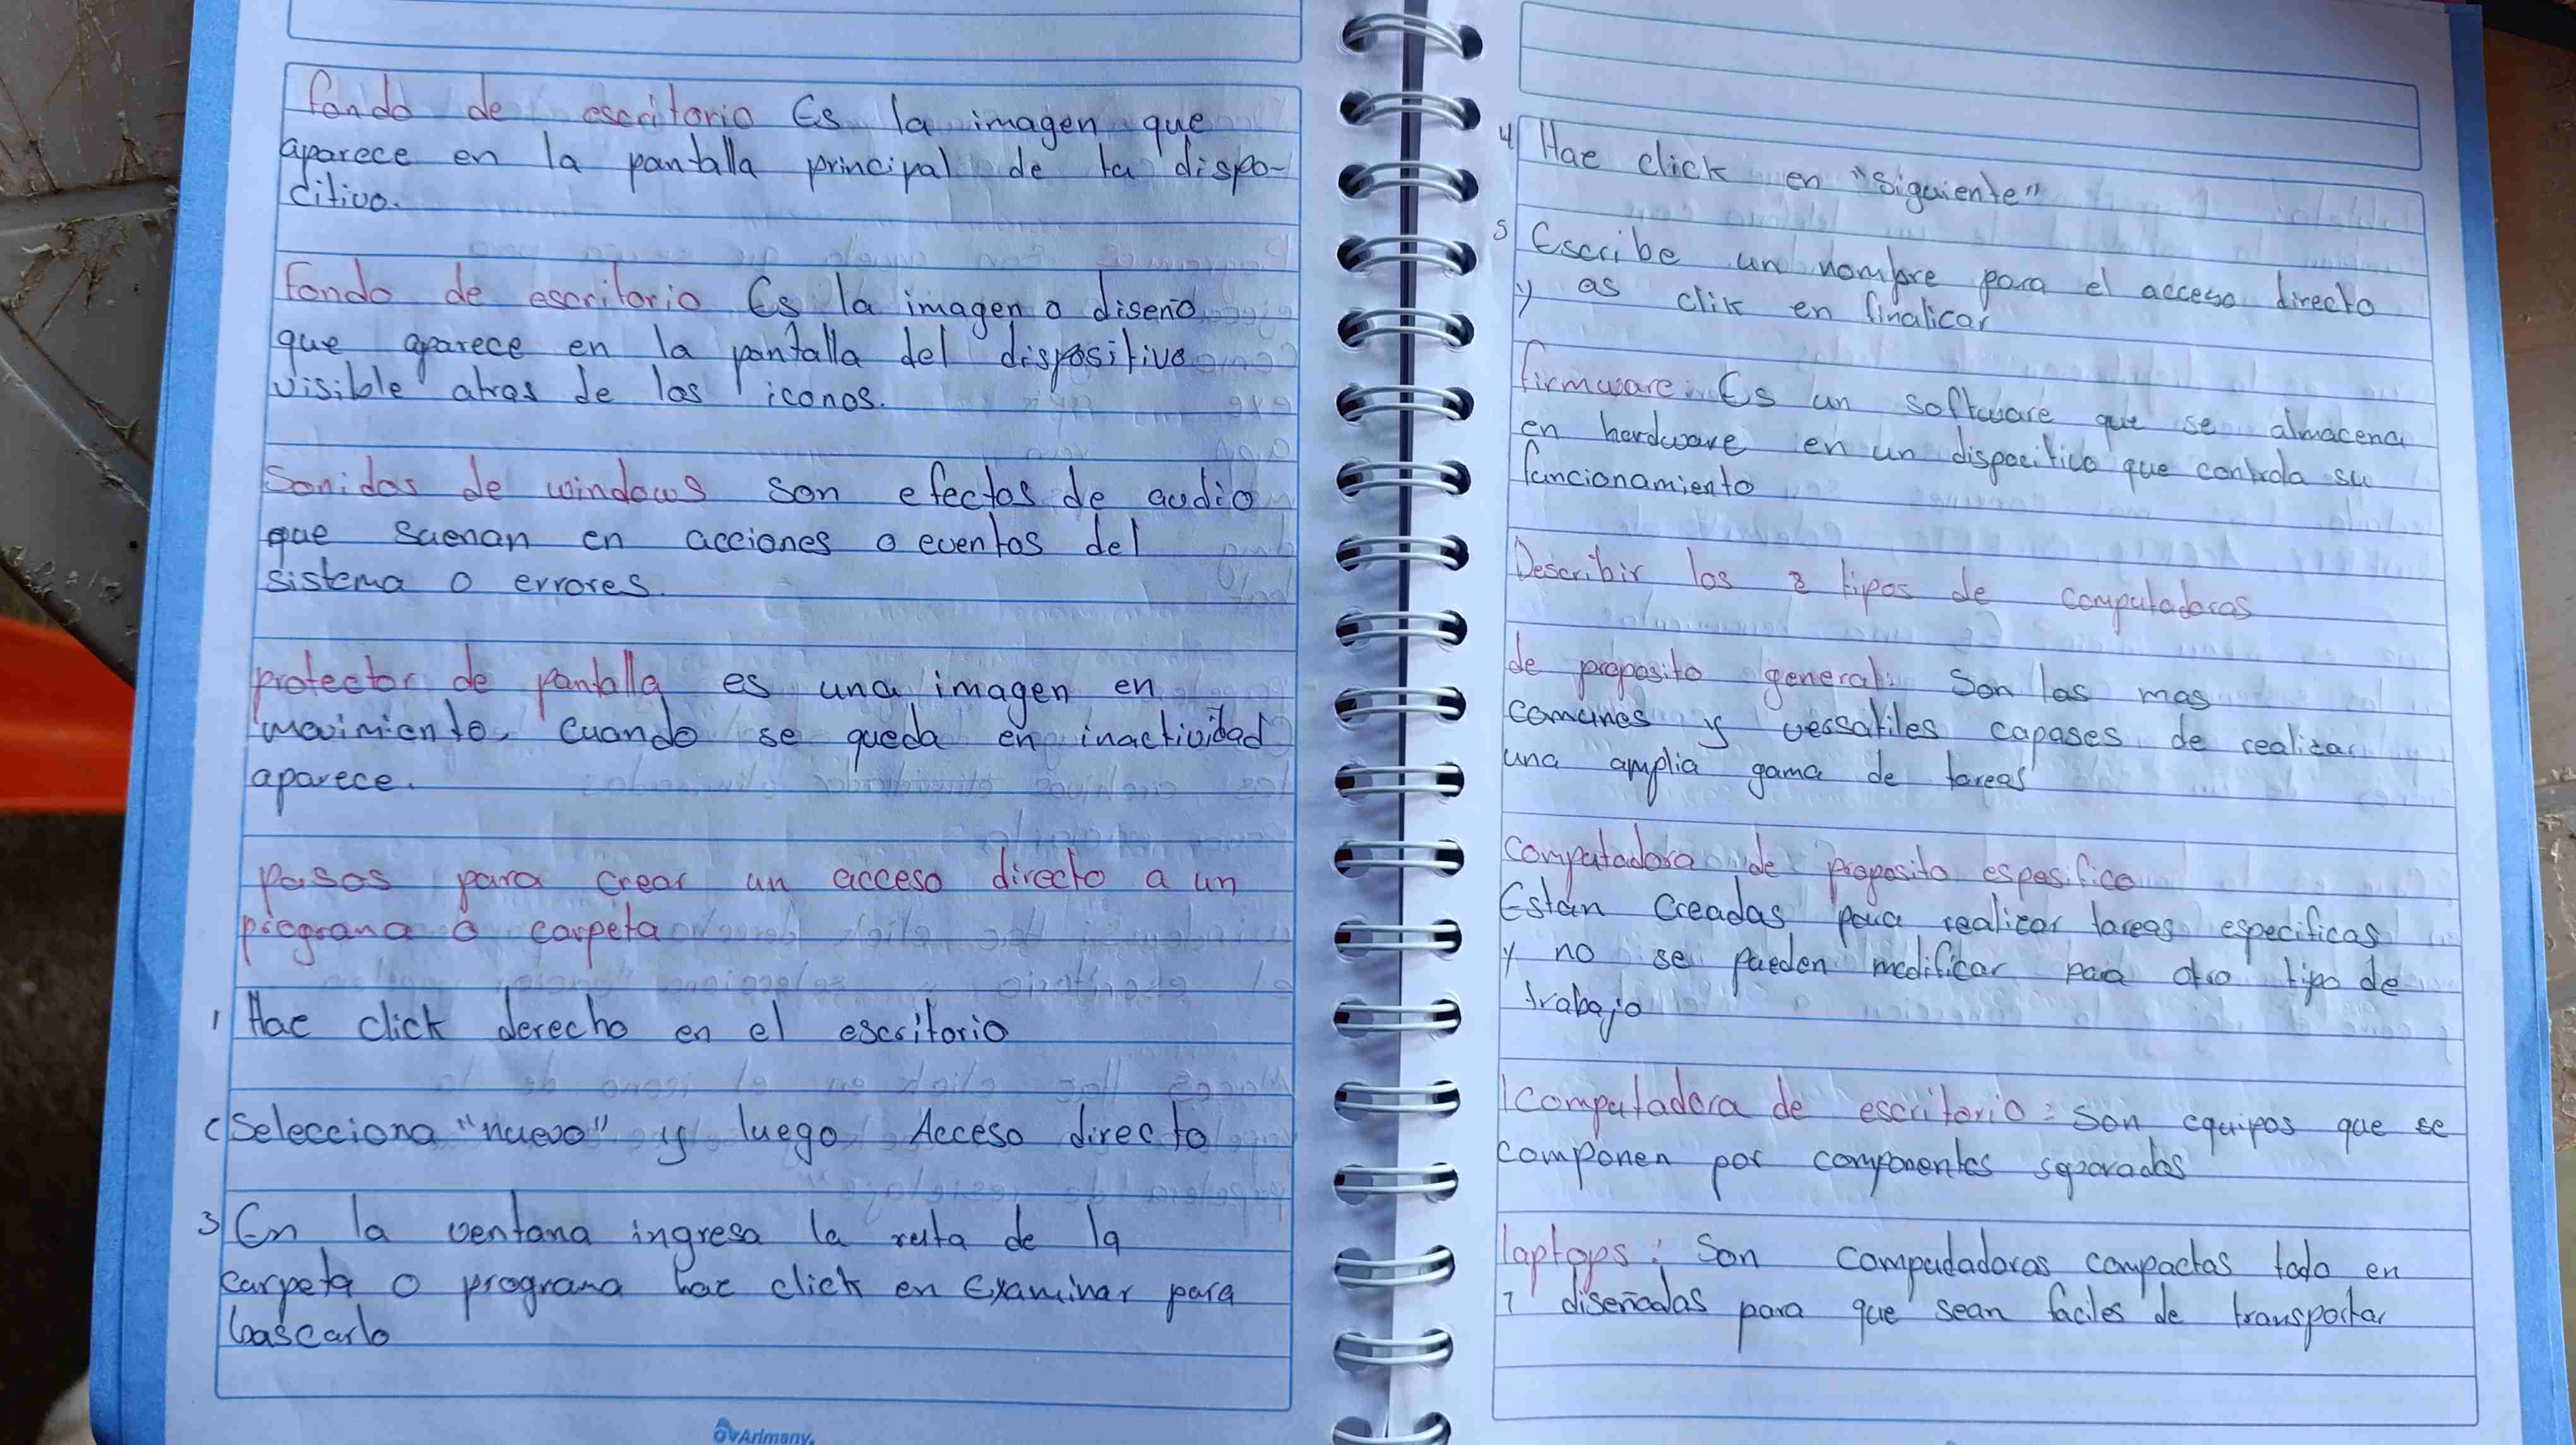 fondo de escritorio Es la imagen que
aparece en la pantalla principal de la dispo-
citivo.
fondo de escritorio Es la imagen o diseño
que aparece en la pantalla del dispositivo
visible atras de los iconos.
Sonidos de windows son efectos de audio
que suenan en acciones o eventos del
sistema o errores.
protector de pantalla es una imagen en
movimiento, cuando se queda en inactividad
aparece.
pasos para crear un acceso directo a un
prograna o carpeta
1 Hae click derecho en el escritorio
Selecciona "nuevo" y luego Acceso directo
3 En la ventana ingresa la ruta de la
carpeta o prograna hac click en Examinar para
buscarlo
Arimany.
4 Hae click en "siguiente"
5 Escribe un nombre para el acceso directo
y as clik en finalicar
firmware: Es un software que se almacena
en herdware en un dispocitivo que controla su
funcionamiento
Describir los 8 tipos de computadoras
de proposito general: Son las mas
comunes y versatiles capases de realizar
una amplia gama de tareas
computadora de proposito espesifico
Están creadas para realizar tareas especificas
y no se pueden modificar para otro tipo de
trabajo
computadora de escritorio: Son equipos que se
componen por componentes separados
laptops: Son compudadoras compactas todo en
1 diseñadas para que sean faciles de transportar